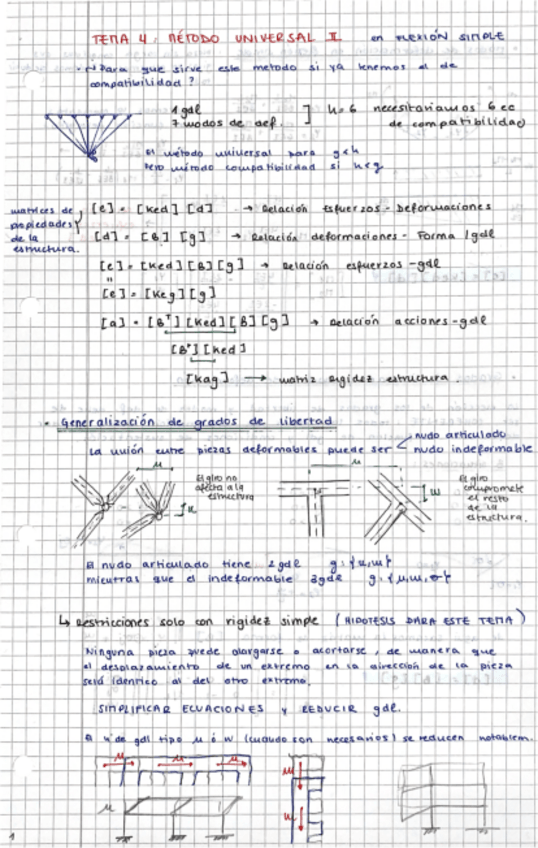 TEMA 4: MÉTODO UNIVERSAL II en FLEXIÓN SIMPLE
¿Para que sirve este metodo si ya tenemos el de
compatibilidad?
1 gdl
7 modos de def.
h=6 necesitariamos 6 ec
de compatibilidad
el método universal para g<h
pero método compatibilidad si h<g
matrices de
propiedades
de la
estructura.
[e] = [Ked] [d] → Relación esfuerzos - Deformaciones
[d] = [B] [g] → Relación deformaciones - Forma / gdl
[e] = [Ked] [B] [g] → Relación esfuerzos - gdl
[e] = [Keg] [g]
[a] = [Bᵀ] [Ked] [B] [g] → Relación acciones - gdl
[Bᵀ] [Ked]
[Kag] → matriz rigidez estructura.
• Generalización de grados de libertad
La unión entre piezas deformables puede ser
nudo articulado
nudo indeformable
u
El giro no
afecta a la
estructura
u
w
El giro
compromete
el resto
de la
estructura.
El nudo articulado tiene 2gdl g: {u,w}
mientras que el indeformable 3gdl g: {u,w,θ}
↳ Restricciones solo con rigidez simple (HIPOTESIS PARA ESTE TEMA)
Ninguna pieza puede alargarse o acortarse, de manera que
el desplazamiento de un extremo en la dirección de la pieza
será identico al del otro extremo.
SIMPLIFICAR ECUACIONES y REDUCIR gdl.
El nº de gdl tipo u ó w (cuando son necesarios) se reducen notablem.
u u u
u
w
w
1